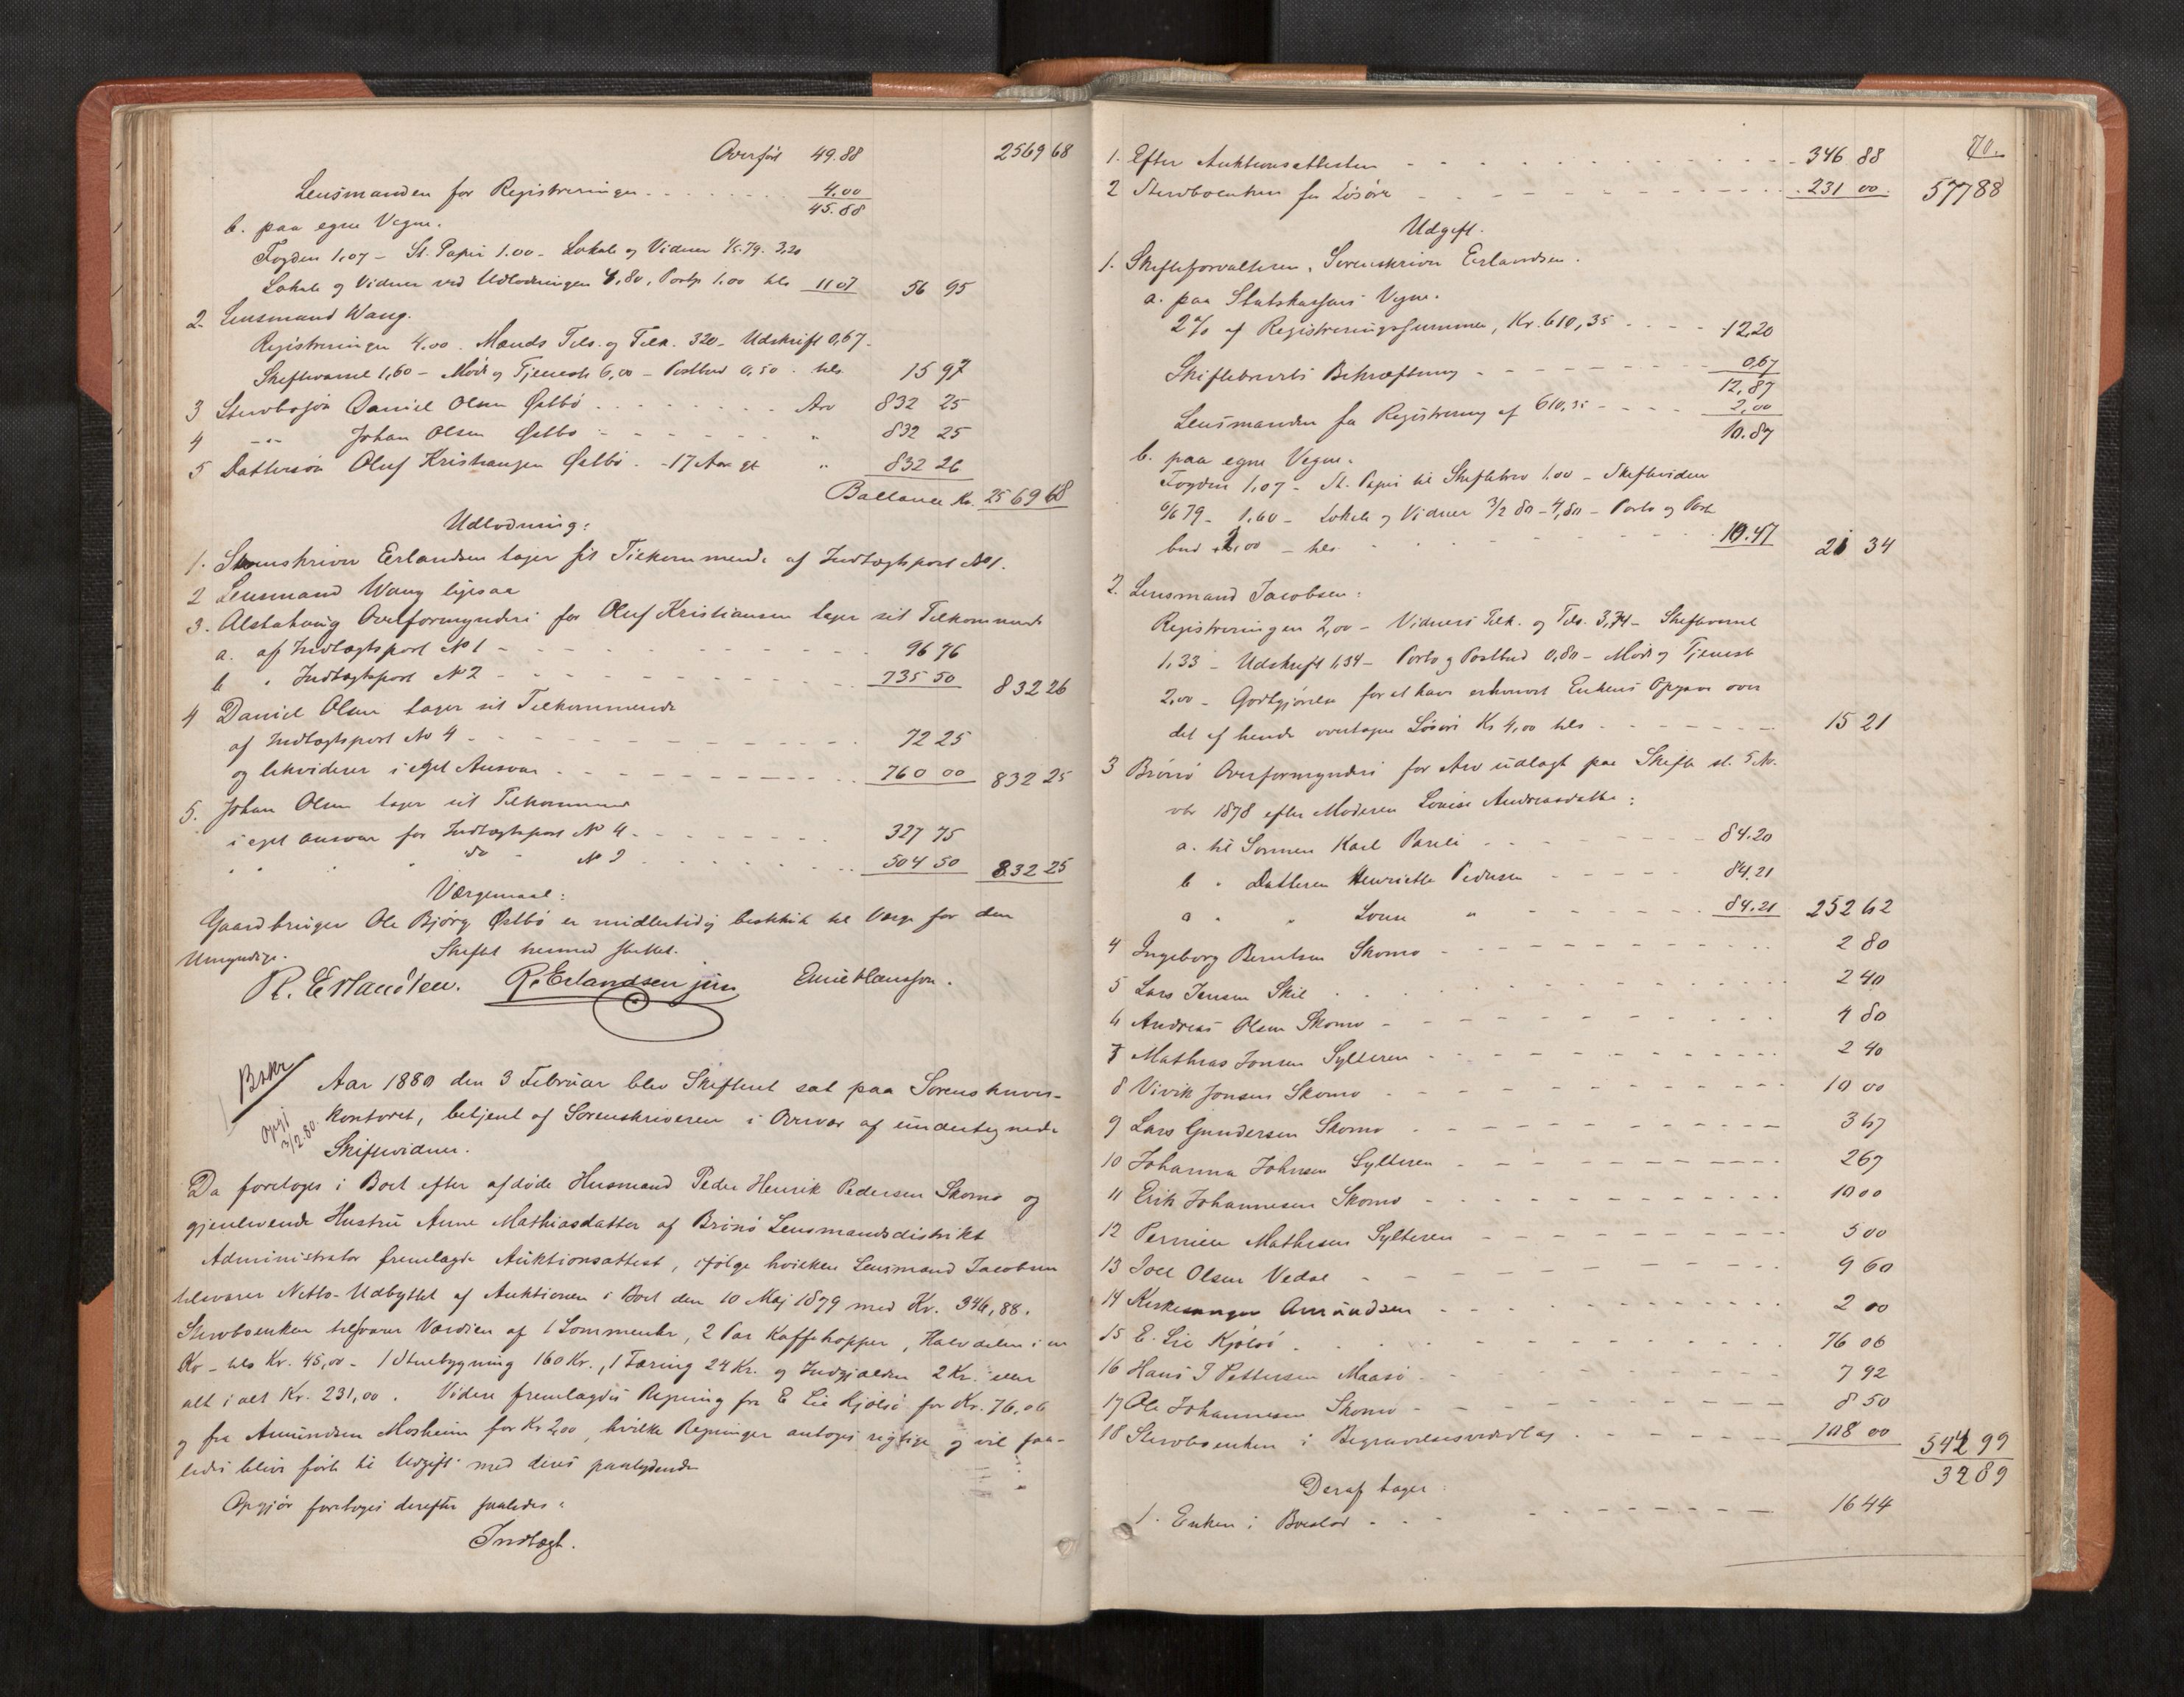 Overført 49.88 2569 68
Lensmanden for Registreringen 4.00
45.88
b. paa egne Vegne.
Fogden 1,07 - St. Papir 1.00 - Lokale og Vidner 1/5.79. 3,20
Lokale og Vidner ved Udlodningen 4,80, Porto 1.00 tils 11 07 56 95
2. Lensmand Wang.
Registreringen 4.00. Mænds Tils. og Tilk. 320 - Udskrift 0,67.
Skiftevarsel 1,60 - Møde og Tjeneste 6,00 - Postbud 0,50. tils. 15 97
3 Stervbosøn Daniel Olsen Østbø Arv 832 25
4 -"- Johan Olsen Østbø " 832 25
5 Dattersøn Oluf Kristiansen Østbø. - 17 Aar gl " 832 26
Ballance Kr. 2569 68
Udlodning:
1. Sorenskriver Erlandsen tager sit Tilkommende af Indtægtspost No 1.
2 Lensmand Wang ligesaa
3. Alstahoug Overformynderi for Oluf Kristiansen tager sit Tilkommende
a. af Indtægtspost No 1 96 76
b " Indtægtspost No 2 735 50 832 26
4 Daniel Olsen tager sit Tilkommende
af Indtægtspost No 4 72 25
og likviderer i eget Ansvar 760 00 832 25
5. Johan Olsen tager sit Tilkommende
i eget ansvar for Indtægtspost No 4 327 75
" " " do - No 3 504 50 832 25
Værgemaal:
Gaardbruger Ole Bjørg Østbø er midlertidig beskikket til Værge for den
Umyndige. Skiftet hermed sluttet.
R. Erlandsen. R. Erlandsen jun Emil Hansson.
Bskr
Opgj
3/2.80.
Aar 1880 den 3 Februar blev Skifteret sat paa Sorenskriver-
kontoret, betjent af Sorenskriveren i Overvær af undertegnede
Skiftevidner.
Da foretoges i Boet efter afdøde Husmand Peder Henrik Pedersen Skomo og
gjenlevende Hustru Anne Mathiasdatter af Brønø Lensmandsdistrikt
Administrator fremlagde Auktionsattest, ifølge hvilken Lensmand Jacobsen
tilsvarer Netto-Udbyttet af Auktionen i Boet den 10 Maj 1879 med Kr. 346,88.
Stervboenken tilsvarer Værdien af 1 Lommeuhr, 2 Par Kaffekopper, Halvdelen i en
Ko - tils Kr. 45,00 - 1 Stuebygning 160 Kr., 1 Færing 24 Kr. og Indgjælden 2 Kr. eller
alt i alt Kr. 231,00. Videre fremlagdes Regning fra E Lie Kjølsø for Kr. 76,06
og fra Amundsen Mosheim for Kr 2,00, hvilke Regninger antoges rigtige og vil saa-
ledes blive ført til Udgift med deres paalydende
Opgjør foretoges derefter saaledes:
Indtægt.
70.
1. Efter Auktionsattesten 346 88
2 Stervboenken for Løsøre 231 00 577 88
Udgift.
1. Skifteforvalteren, Sorenskriver Erlandsen.
a. paa Statskassens Vegne.
2% af Registreringssummen, Kr. 610,35 12,20
Skiftebrevets Bekræftning 0,67
12,87
Lensmanden for Registrering af 610,35 2,00
10.87
b. paa egne Vegne.
Fogden 1,07 - St. Papir til Skiftebrev 1,00 - Skiftevidner
6/6 79 - 1,60 - Lokale og Vidner 3/2 80 - 4,80 - Porto og Post
bud 2,00 - tils. 10.47 21 34
2. Lensmand Jacobsen:
Registreringen 2,00 - Vidners Tilk. og Tils. 3,74 - Skiftevarsel
1,33 - Udskrift 1,34 - Porto og Postbud 0,80 - Møde og Tjeneste
2,00 - Godtgjørelse for at have erhvervet Enkens Opgave over
det af hende overtagne Løsøre Kr 4,00 tils 15 21
3 Brønø Overformynderi for Arv udlagt paa Skifte sl. 5 No.
vbr 1878 efter Moderen Lovise Andreasdatter:
a. til Sønnen Karl Pareli 84.20
b " Datteren Henriette Pedersen 84.21
c " " Lovise " 84.21 252 62
4 Ingeborg Berntsen Skomo 2 80
5 Lars Jensen Skil 2 40
6 Andreas Olsen Skomo 4 80
7 Mathias Jonsen Sylteren 2 40
8 Vivik Jonsen Skomo 10 00
9 Lars Gundersen Skomo 3 67
10 Johanna Johnsen Sylteren 2 67
11 Erik Johannesen Skomo 10 00
12 Pernille Mathisen Sylteren 5 00
13 Joel Olsen Vedal 9 60
14 Kirkesanger Amundsen 2 00
15 E. Lie Kjølsø 76 06
16 Hans P Pettersen Maasø 7 92
17 Ole Johannesen Skomo 8 50
18 Stervboenken i Begravelsesvederlag 108 00 544 99
32 89
Deraf tager:
1. Enken i Boeslod 16 44